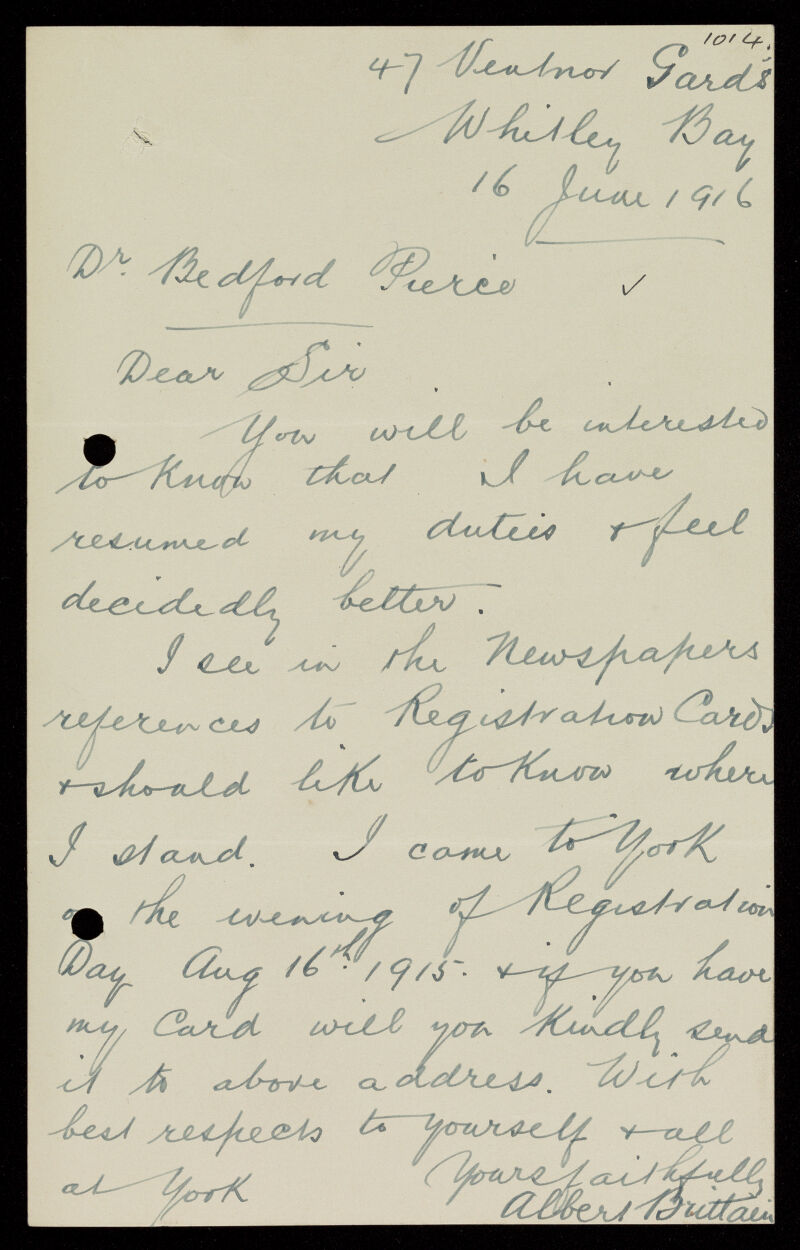 1014.
47 Ventnor Gard's
Whitley Bay
16 June 1916
Dr. Bedford Pierce ✓
Dear Sir
You will be interested
to know that I have
resumed my duties & feel
decidedly better.
I see in the Newspapers
references to Registration Cards
& should like to know where
I stand. I came to York
o the evening of Registration
Day Aug 16th. 1915. & if you have
my Card will you kindly send
it to above address. With
best respects to yourself & all
at York Yours faithfully
Albert Brittain